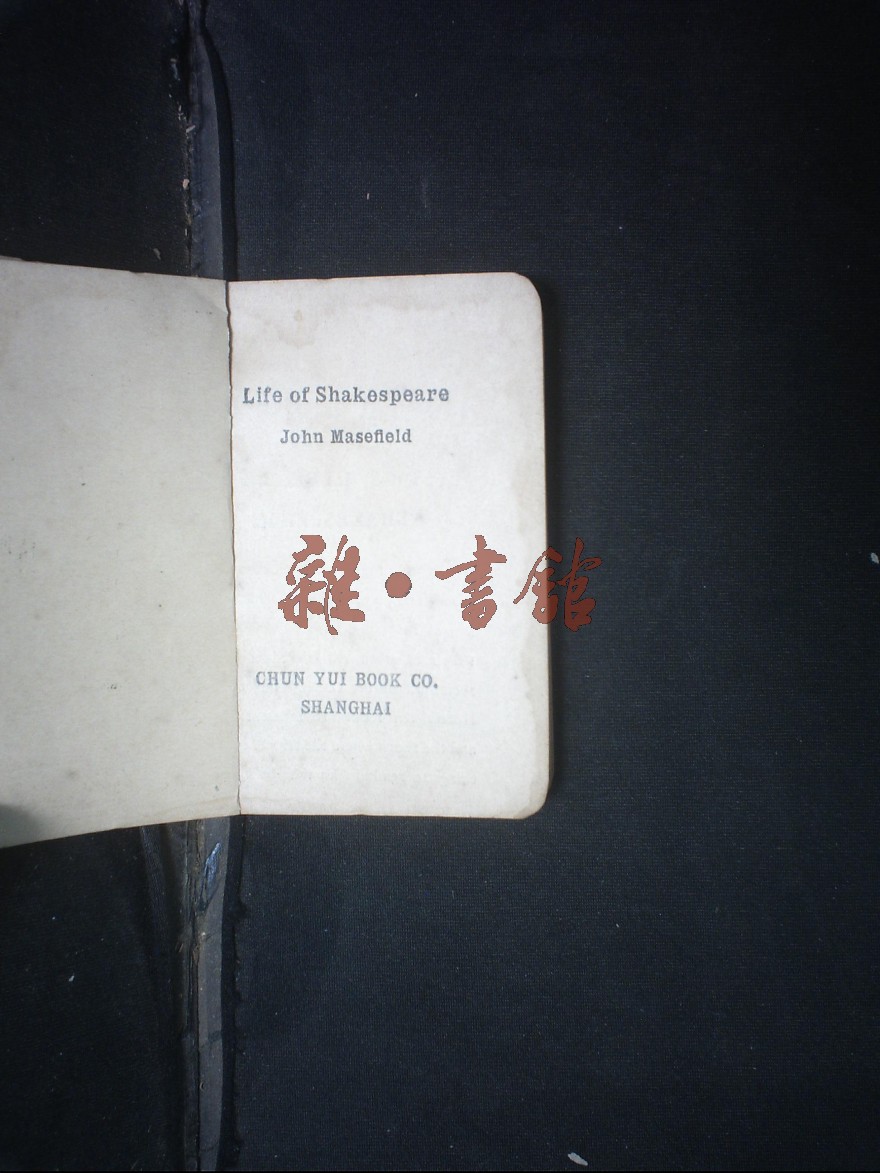 Life of Shakespeare
John Masefield
雜·書館
CHUN YUI BOOK CO.
SHANGHAI